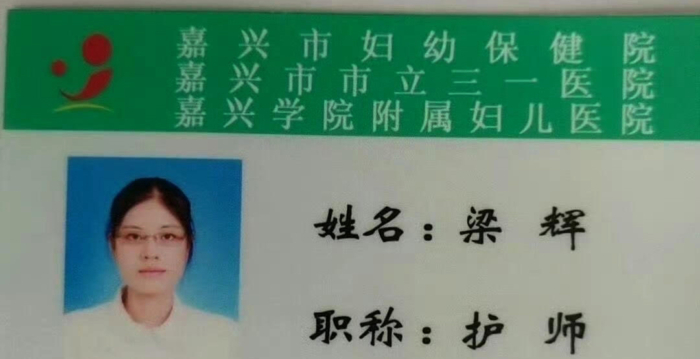 嘉兴市妇幼保健院
嘉兴市市立三一医院
嘉兴学院附属妇儿医院
姓名：梁 辉
职称：护 师